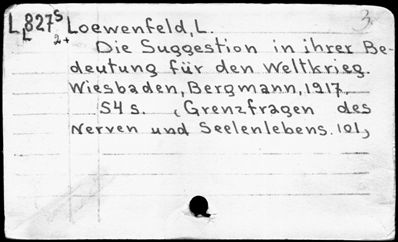 LL827S Loewenfeld, L. 3
2+
Die Suggestion in ihrer Be-
deutung für den Weltkrieg.
Wiesbaden, Bergmann, 1917.
54 s. (Grenzfragen des
Nerven und Seelenlebens. 101)